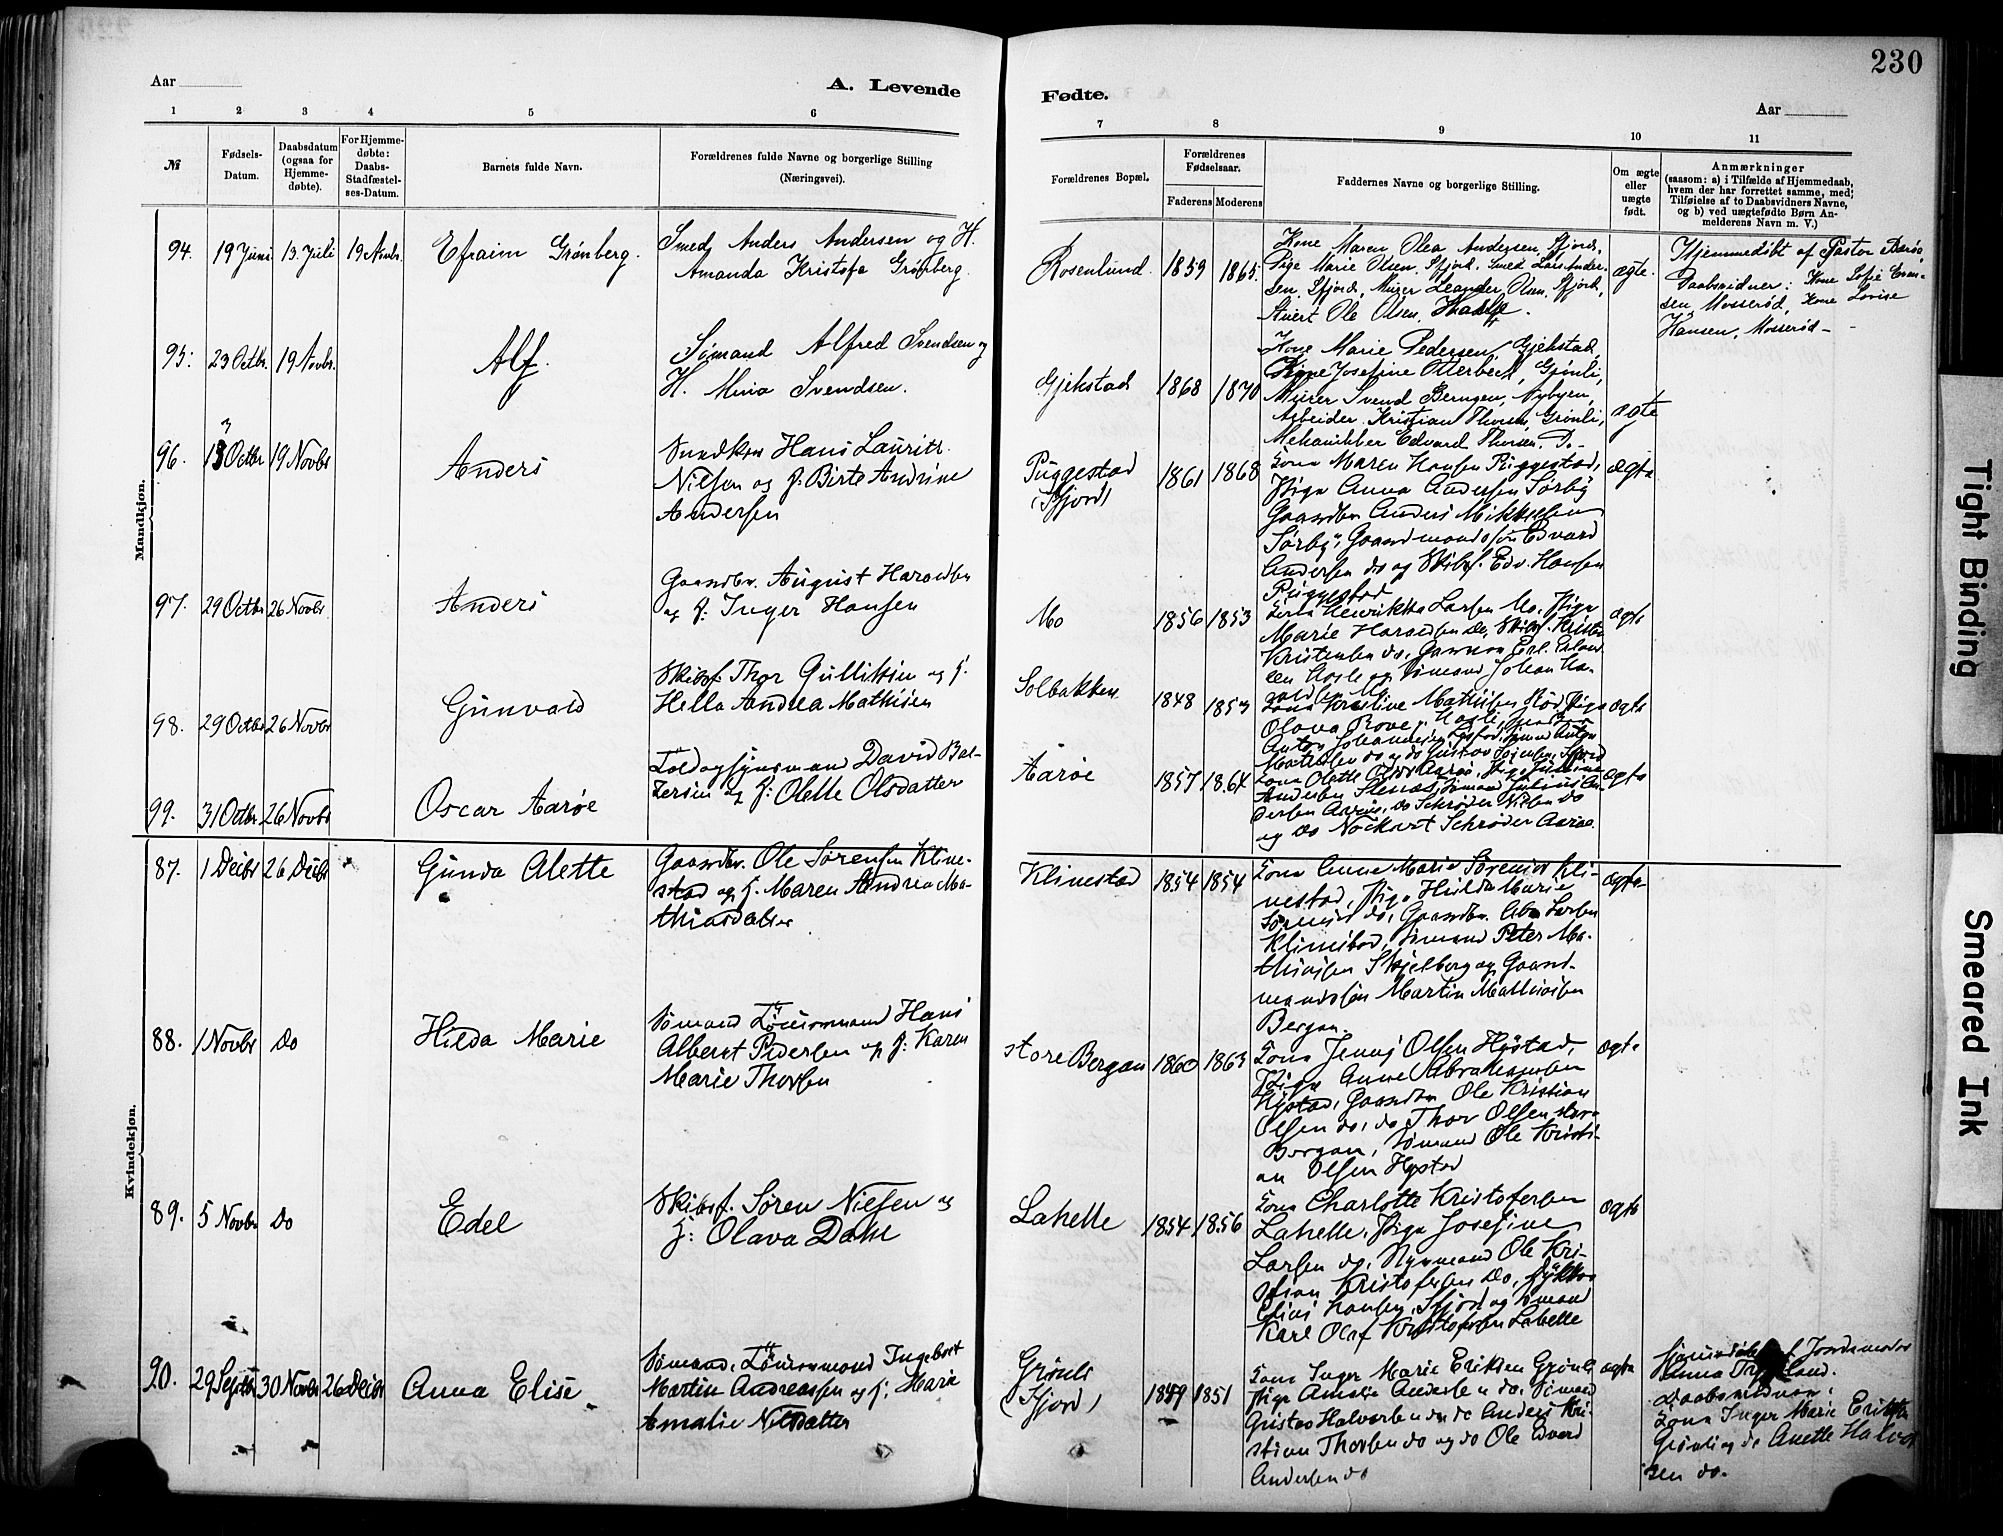 230
Aar
A. Levende
Fødte.
Aar
1 2 3 4 5 6
7 8 9 10 11
№
Fødsels-
Datum.
Daabsdatum
(ogsaa for
Hjemme-
døbte).
For Hjemme-
døbte:
Daabs-
Stadfæstel-
ses-Datum.
Barnets fulde Navn.
Forældrenes fulde Navne og borgerlige Stilling
(Næringsvei).
Forældrenes Bopæl.
Forældrenes
Fødselsaar.
Faderens
Moderens
Faddernes Navne og borgerlige Stilling.
Om ægte
eller
uægte
født.
Anmærkninger
(saasom: a) i Tilfælde af Hjemmedaab,
hvem der har forrettet samme, med;
Tilføielse af to Daabsvidners Navne,
og b) ved uægtefødte Børn An-
melderens Navn m. V.)
Mandkjøn.
94. 19 Juni 13 Juli 19 Novbr. Efraim Grønberg.
Smed Anders Andersen og H.
Amanda Kristofa Grønberg.
Rosenlund. 1859 1865. ægte.
Kone Maren Olea Andersen, Sfjord,
Pige Marie Olsen, Sfjord, Smed Lars Ander-
sen, Sfjord, Murer Leander Olsen, Sfjord,
Stuert Ole Olsen,
Hjemmedøbt af Pastor Aarøe,
Daabsvidner: Kone Sofie Evan-
sen, Mosserød, Kone Lovise
Hansen, Mosserød -
95: 23 Octbr. 19 Novbr. Alf.
Sømand Alfred Svendsen og
H. Mina Svendsen.
Gjekstad 1868 1870 ægte
Kone Marie Pedersen, Gjekstad,
Kone Josefine Otterbeck, Grønli,
Murer Svend Berngen, Nybyen,
Arbeider Kristian Thorsen, Grønli,
Mekanikker Edvard Thorsen, Do -
96. 13 Octbr 19 Novbr Anders
Hans Lauritz
Nilsen og H. Birte Andrine
Andersen
Puggestad
(Sfjord) 1861 1868 ægte
Kona Maren Hansen Puggestad,
Pige Anna Andersen Sørby
Gaardbr. Anders Mikkelsen
Sørby, Gaardmandssøn Edvard
Andersen do og Skibsf. Edv. Hansen
Puggestad
97. 29 Octbr 26 Novbr Anders
Gaardbr. August Haraldsen
og H. Inger Hansen
Mo 1856 1853 ægte
Kona Henrikka Larsen Mo, Pige
Marie Haraldsen do, Skibsf. Kristen
Kristensen do,
og Sømand Johan Ha-
raldsen Mo
98. 29 Octbr 26 Novbr Gunvald
Skibsf. Thor Gulliksen og H.
Hella Andrea Mathisen
Solbakken 1848 1853 ægte
Kona Kristine Mathisen Rød, Pige
Olava Rove,
Anton Johannesen
Mathisen do og do Gustav
99. 31 Octbr 26 Novbr Oscar Aarøe
Toldopsynsmand David Bal-
zersen og H: Olette Olsdatter
Aarøe 1857 1864 ægte
Kona Olette Olsen Aarøe, Pige
Andersen Stenaas, Sømand Julius An-
dersen Aarøe, do Schrøder Nilsen do
og do Nockert Schrøder Aarøe.
Kvindekjøn.
87. 1 Decbr 26 Decbr Gunda Alette
Gaardbr. Ole Sørensen Kline-
stad og H. Maren Andrea Ma-
thiasdatter
Klinestad 1854 1854 ægte
Kona Anne Marie Sørensen Kli-
nestad, Pige Hulda Marie
Sørensen do, Gaardbr. Abr. Larsen
Klinestad, Sømand Peter Ma-
thisen Skjelberg og Gaard-
mandssøn Martin Mathisen
Bergan.
88. 1 Novbr do Hilda Marie
Sømand Tømmermand Hans
Albert Pedersen og H: Karen
Marie Thorsen
Store Bergan 1860 1863 ægte
Kona Jenny Olsen Hystad,
Pige Anne Abrahamsen
Hystad, Gaardbr. Ole Kristian
Olsen do, do Thor Olsen Store
Bergan, Sømand Ole Kristi-
an Olsen Hystad
89. 5 Novbr do Edel
Skibsf. Søren Nielsen og
H: Olava Dahl
Lahelle 1854 1856 ægte
Kona Charlotte Kristofersen
Lahelle, Pige Josefine
Larsen do, Styrmand Ole Kri-
stian Kristofersen do,
Elias Hansen, Sfjord og Sømand
Karl Olaf Kristofersen Lahelle
90. 29 Septbr 30 Novbr 26 Decbr Anna Elise
Sømand, Tømmermand Ingebret
Martin Andreassen og H. Marie
Amalie Nilsdatter
Grønli
(Sfjord) 1849 1851 ægte
Kona Inger Marie Eriksen Grønli
Pige Amalie Andersen do, Sømand
Gustav Halvorsen do do Anders Kri-
stian Thorsen do og do Ole Edvard
Andersen do
Hjemmedøbt af Jordemoder
Anna
Daabsvidner:
Kona Inger Marie Eriksen
Grønli og do Anette Halvor
sen do.
Tight Binding
Smeared Ink